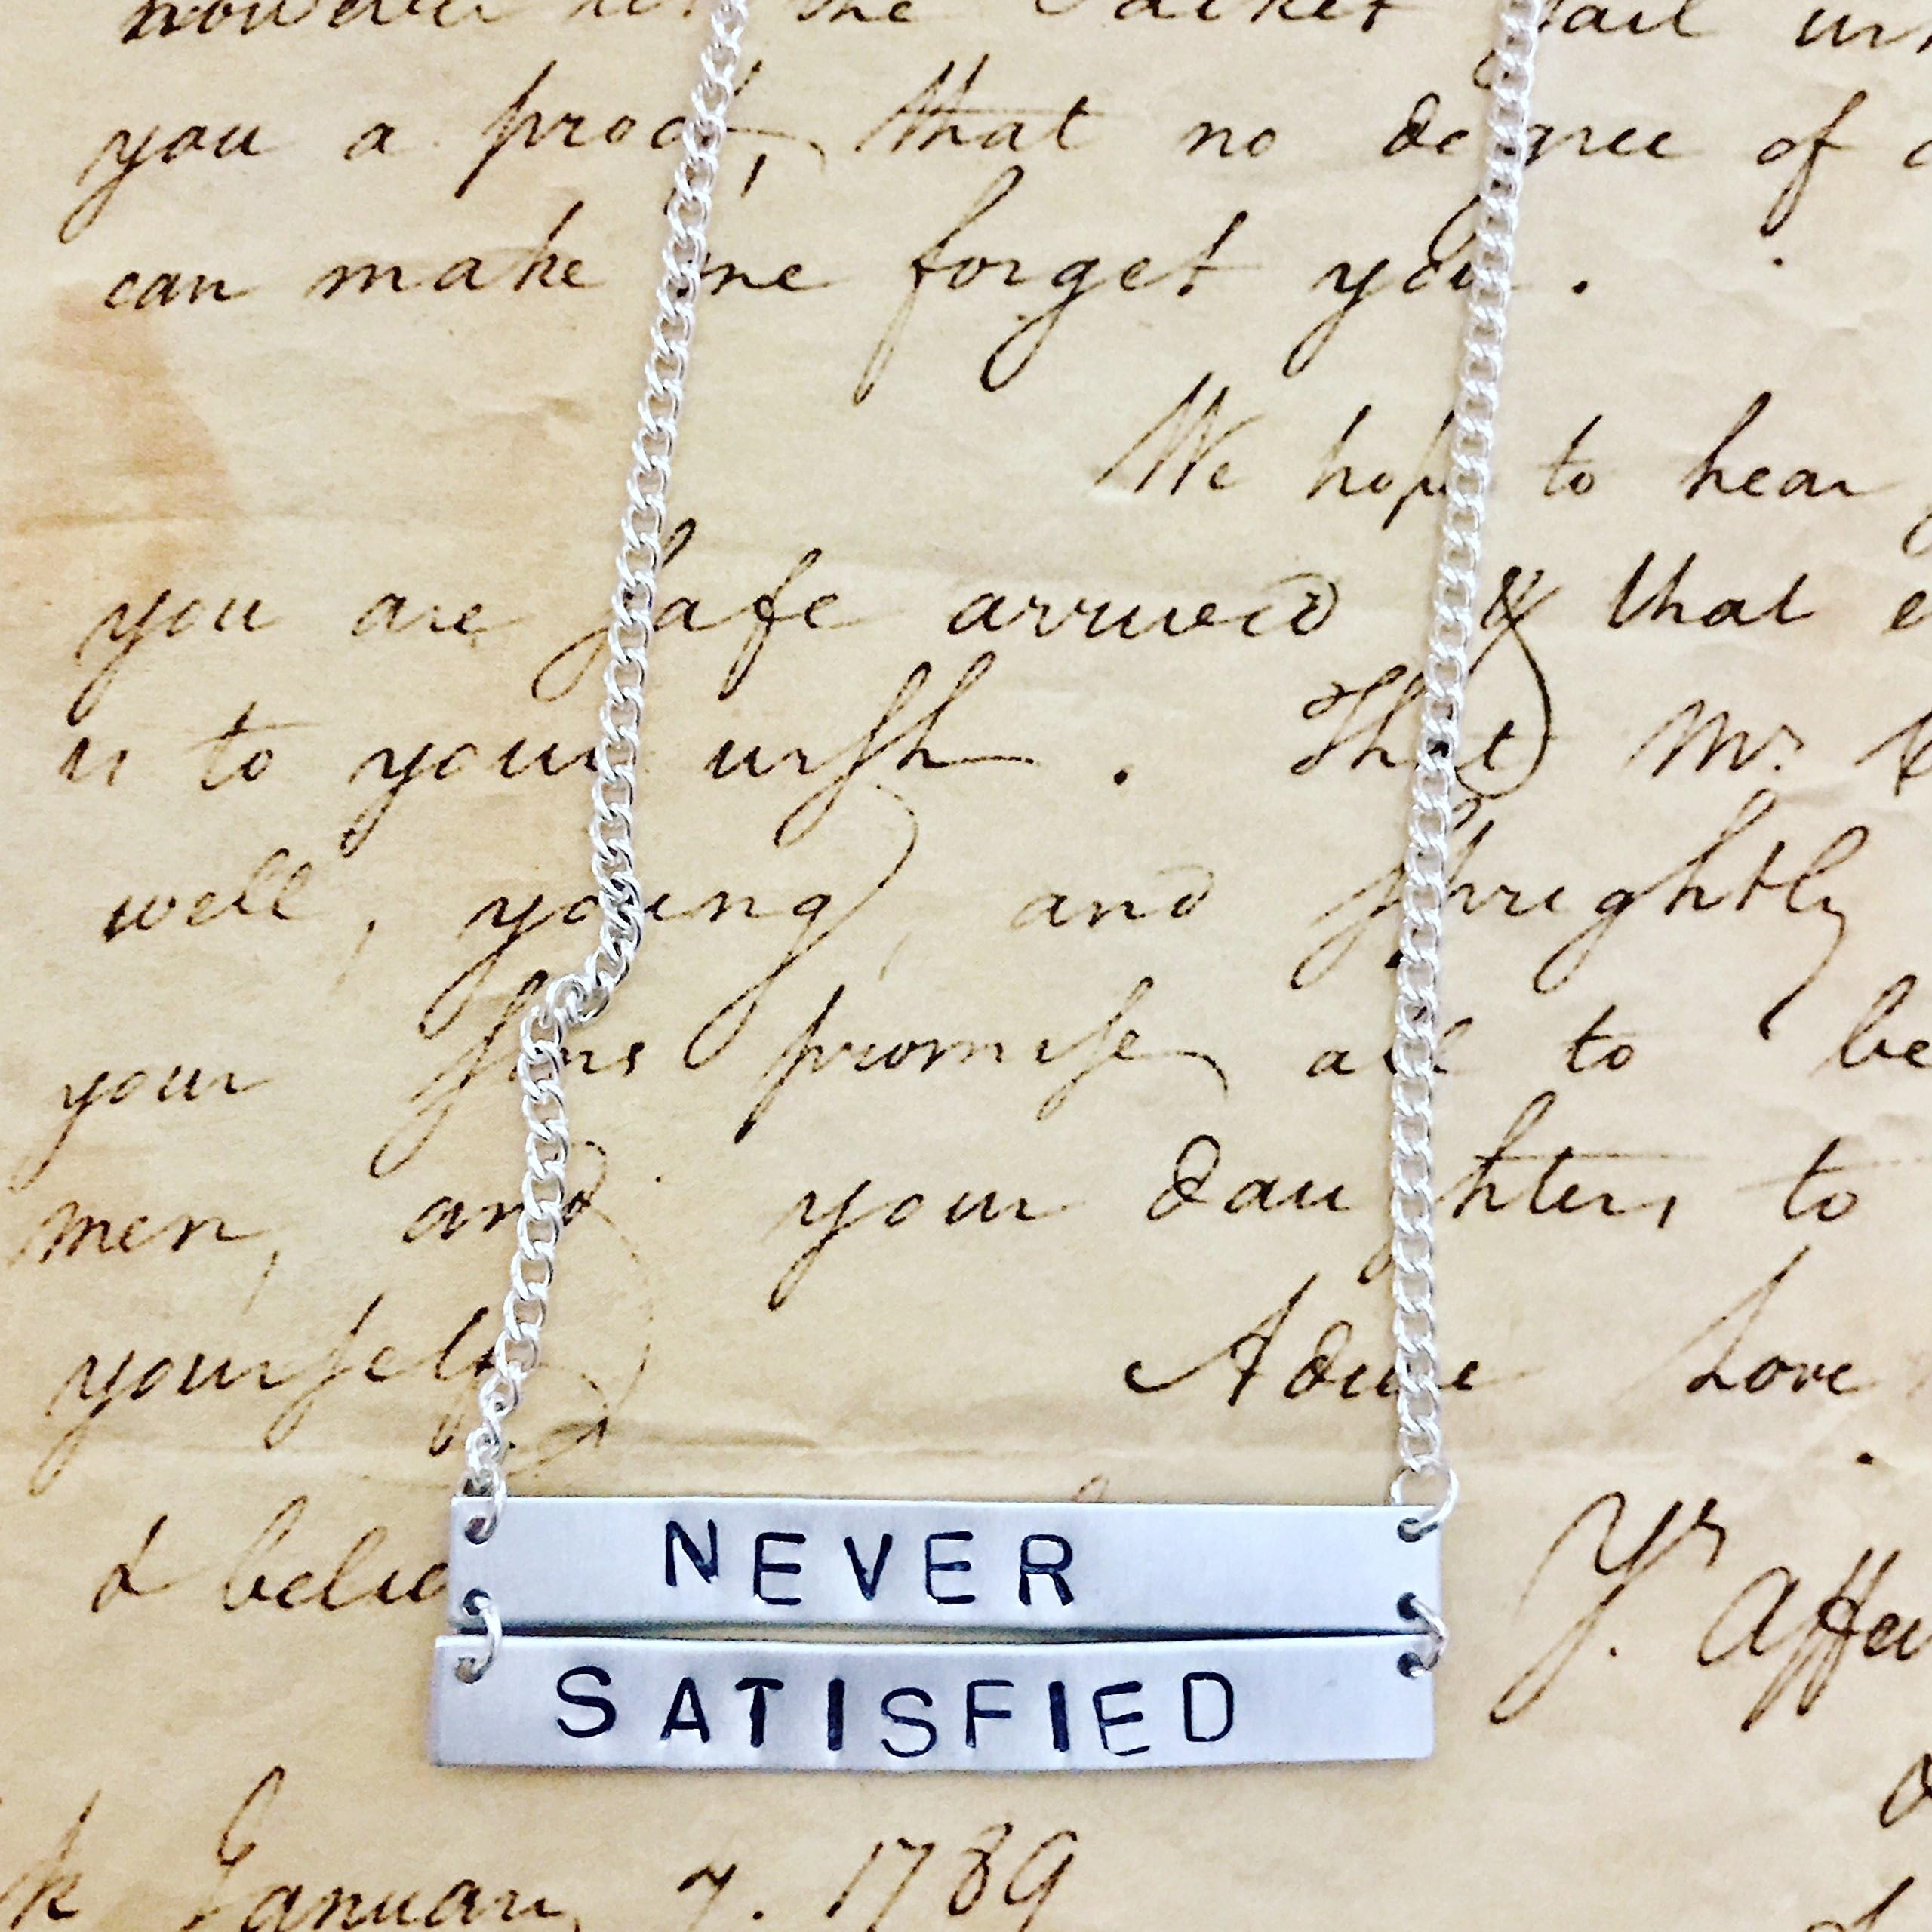 the Packet Sail
you a proof, that no degree of
can make me forget you.
We hope to hear
you are safe arrived & that
is to your wish. That Mr.
well, young, and sprightly
your sons promise all to be
men, and your daughters to
yourself. Adieu Love
& belie
Yr. affe
NEVER
SATISFIED
k January 7. 1789